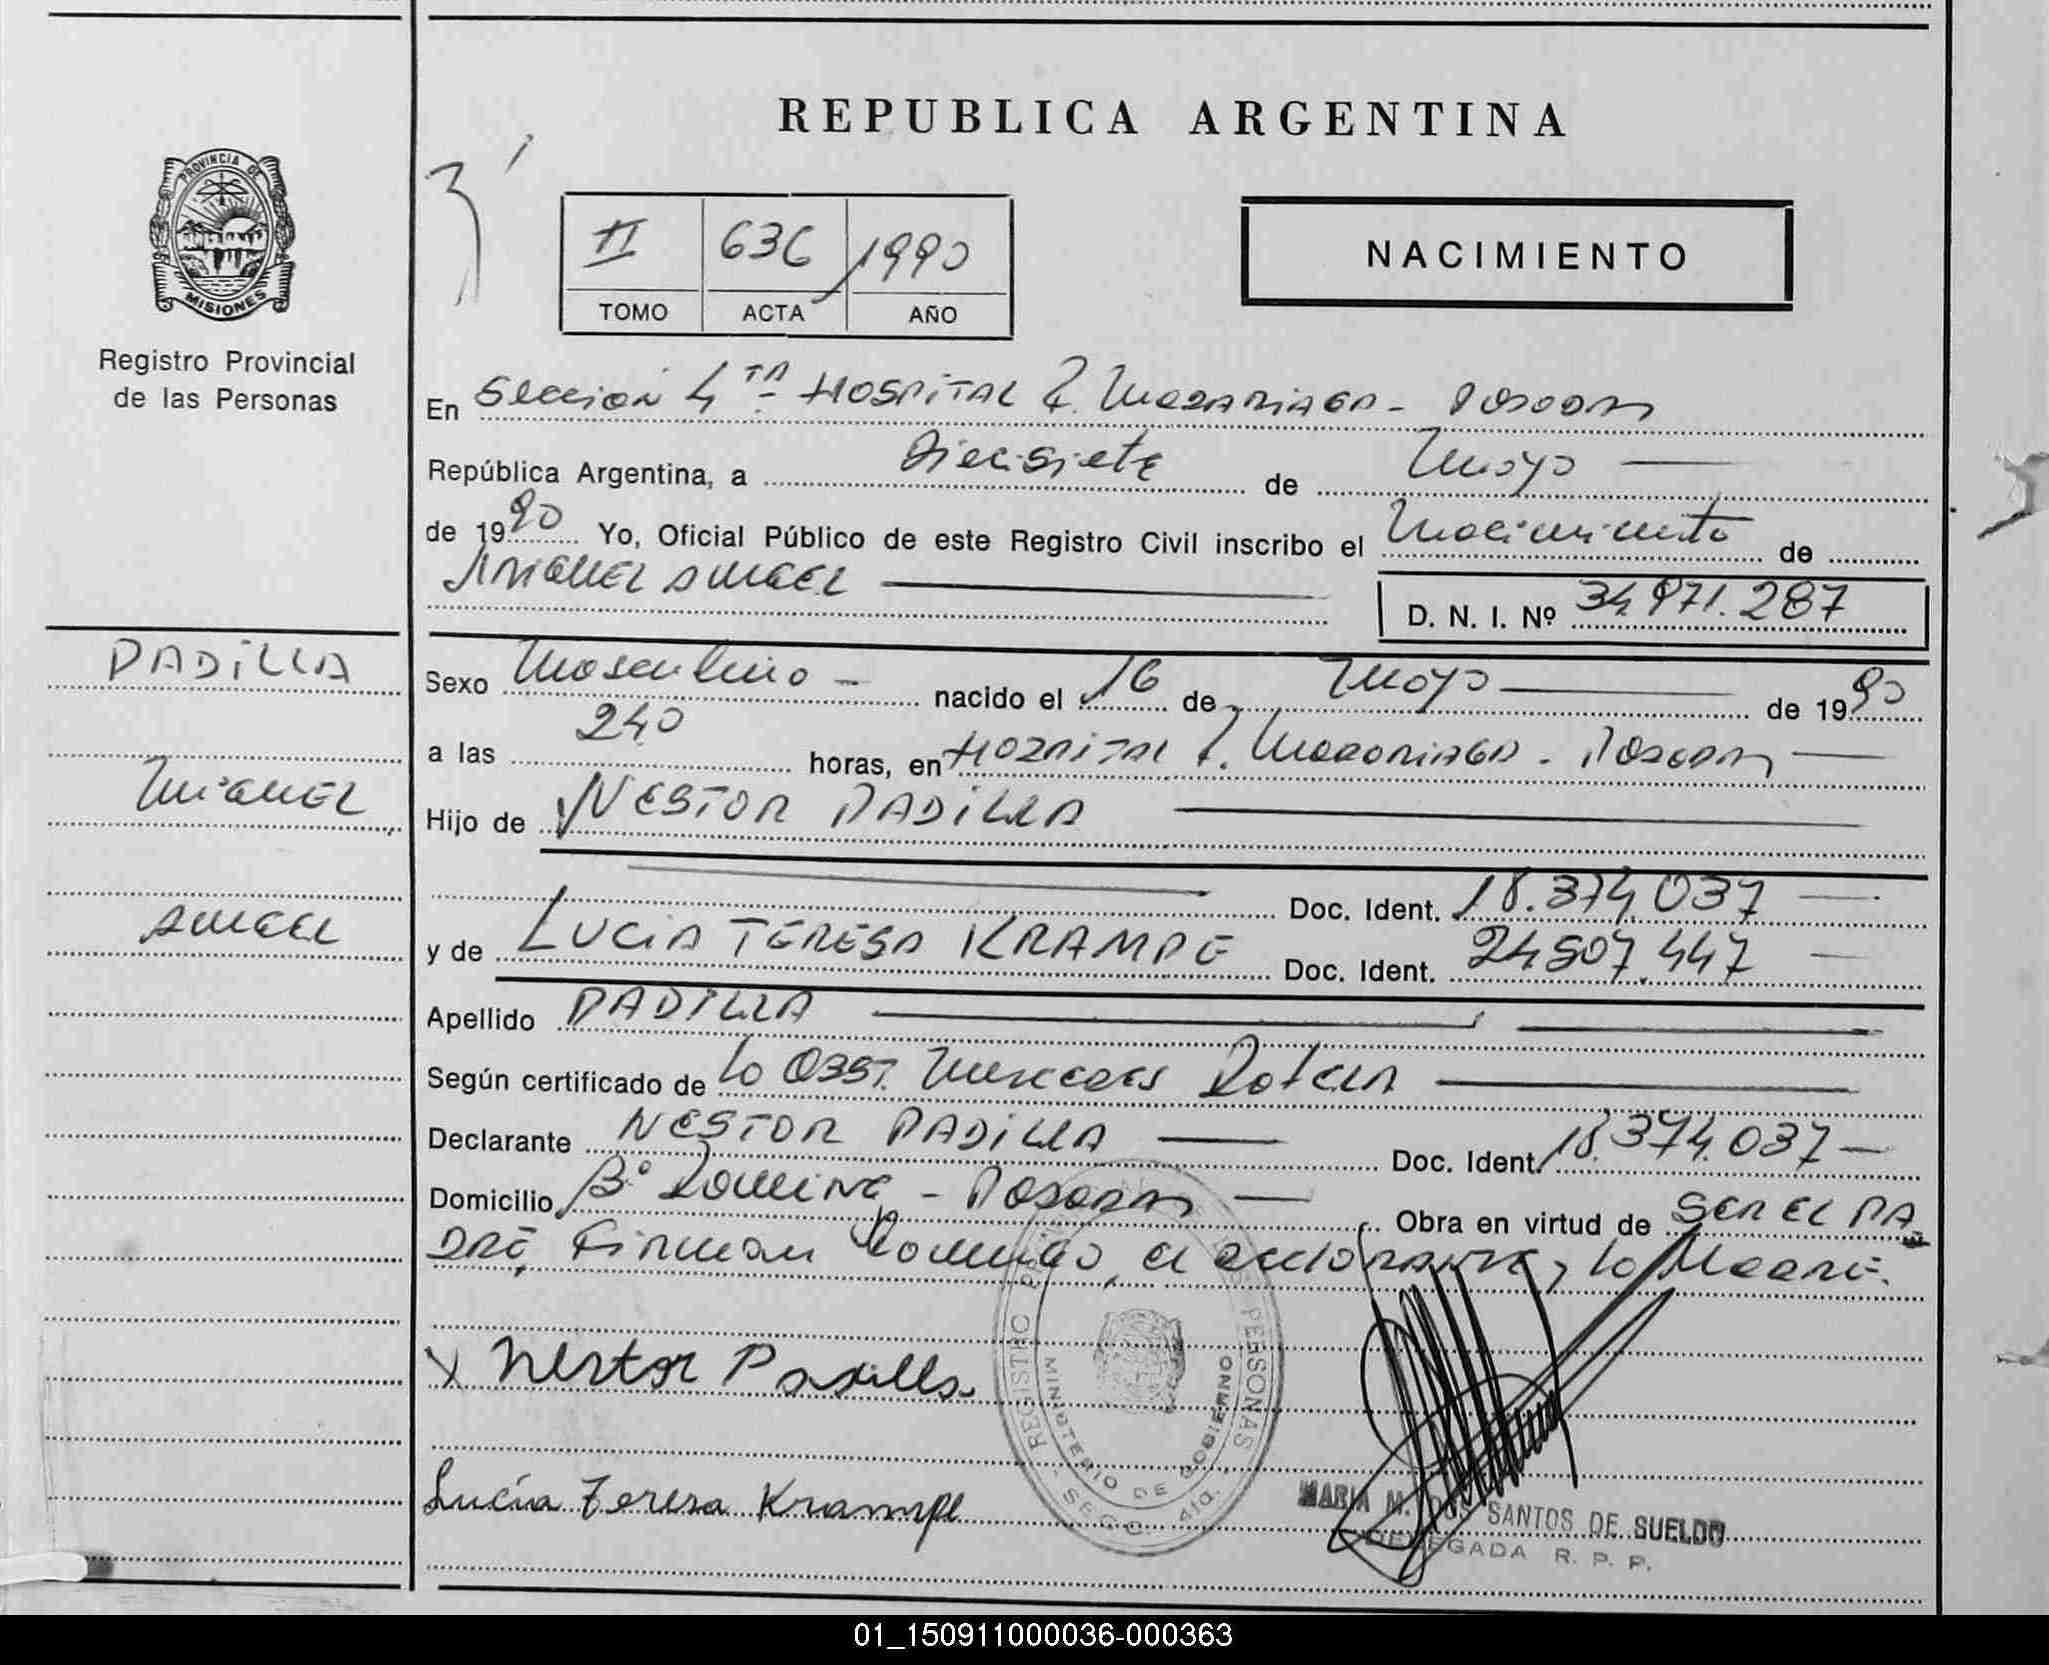 REPUBLICA ARGENTINA
PROVINCIA DE
MISIONES
Registro Provincial
de las Personas
II 636 1990
TOMO ACTA AÑO
NACIMIENTO
En Sección 4TA HOSPITAL R. MADARIAGA - Posadas
República Argentina, a Diecisiete de Mayo
de 1990 Yo, Oficial Público de este Registro Civil inscribo el Nacimiento de
MIGUEL ANGEL
D. N. I. Nº 34.971.287
PADILLA
MIGUEL
ANGEL
Sexo Masculino - nacido el 16 de Mayo de 1990
a las 2,40 horas, en HOSPITAL R. MADARIAGA - Posadas
Hijo de NESTOR PADILLA
Doc. Ident. 18.374.037
y de LUCIA TERESA KRAMPE Doc. Ident. 24.507.447
Apellido PADILLA
Según certificado de la OBST. Mercedes
Declarante NESTOR PADILLA Doc. Ident. 18.374.037
Domicilio Bº - Posadas Obra en virtud de SER EL PA
DRE, Firman Conmigo, el declarante y la Madre.
x Nestor Padilla
Lucía Teresa Krampe
REGISTRO PERSONAS
MINISTERIO DE GOBIERNO
SECC. 4ta.
MARIA M. DOS SANTOS DE SUELDO
DELEGADA R. P. P.
01_150911000036-000363